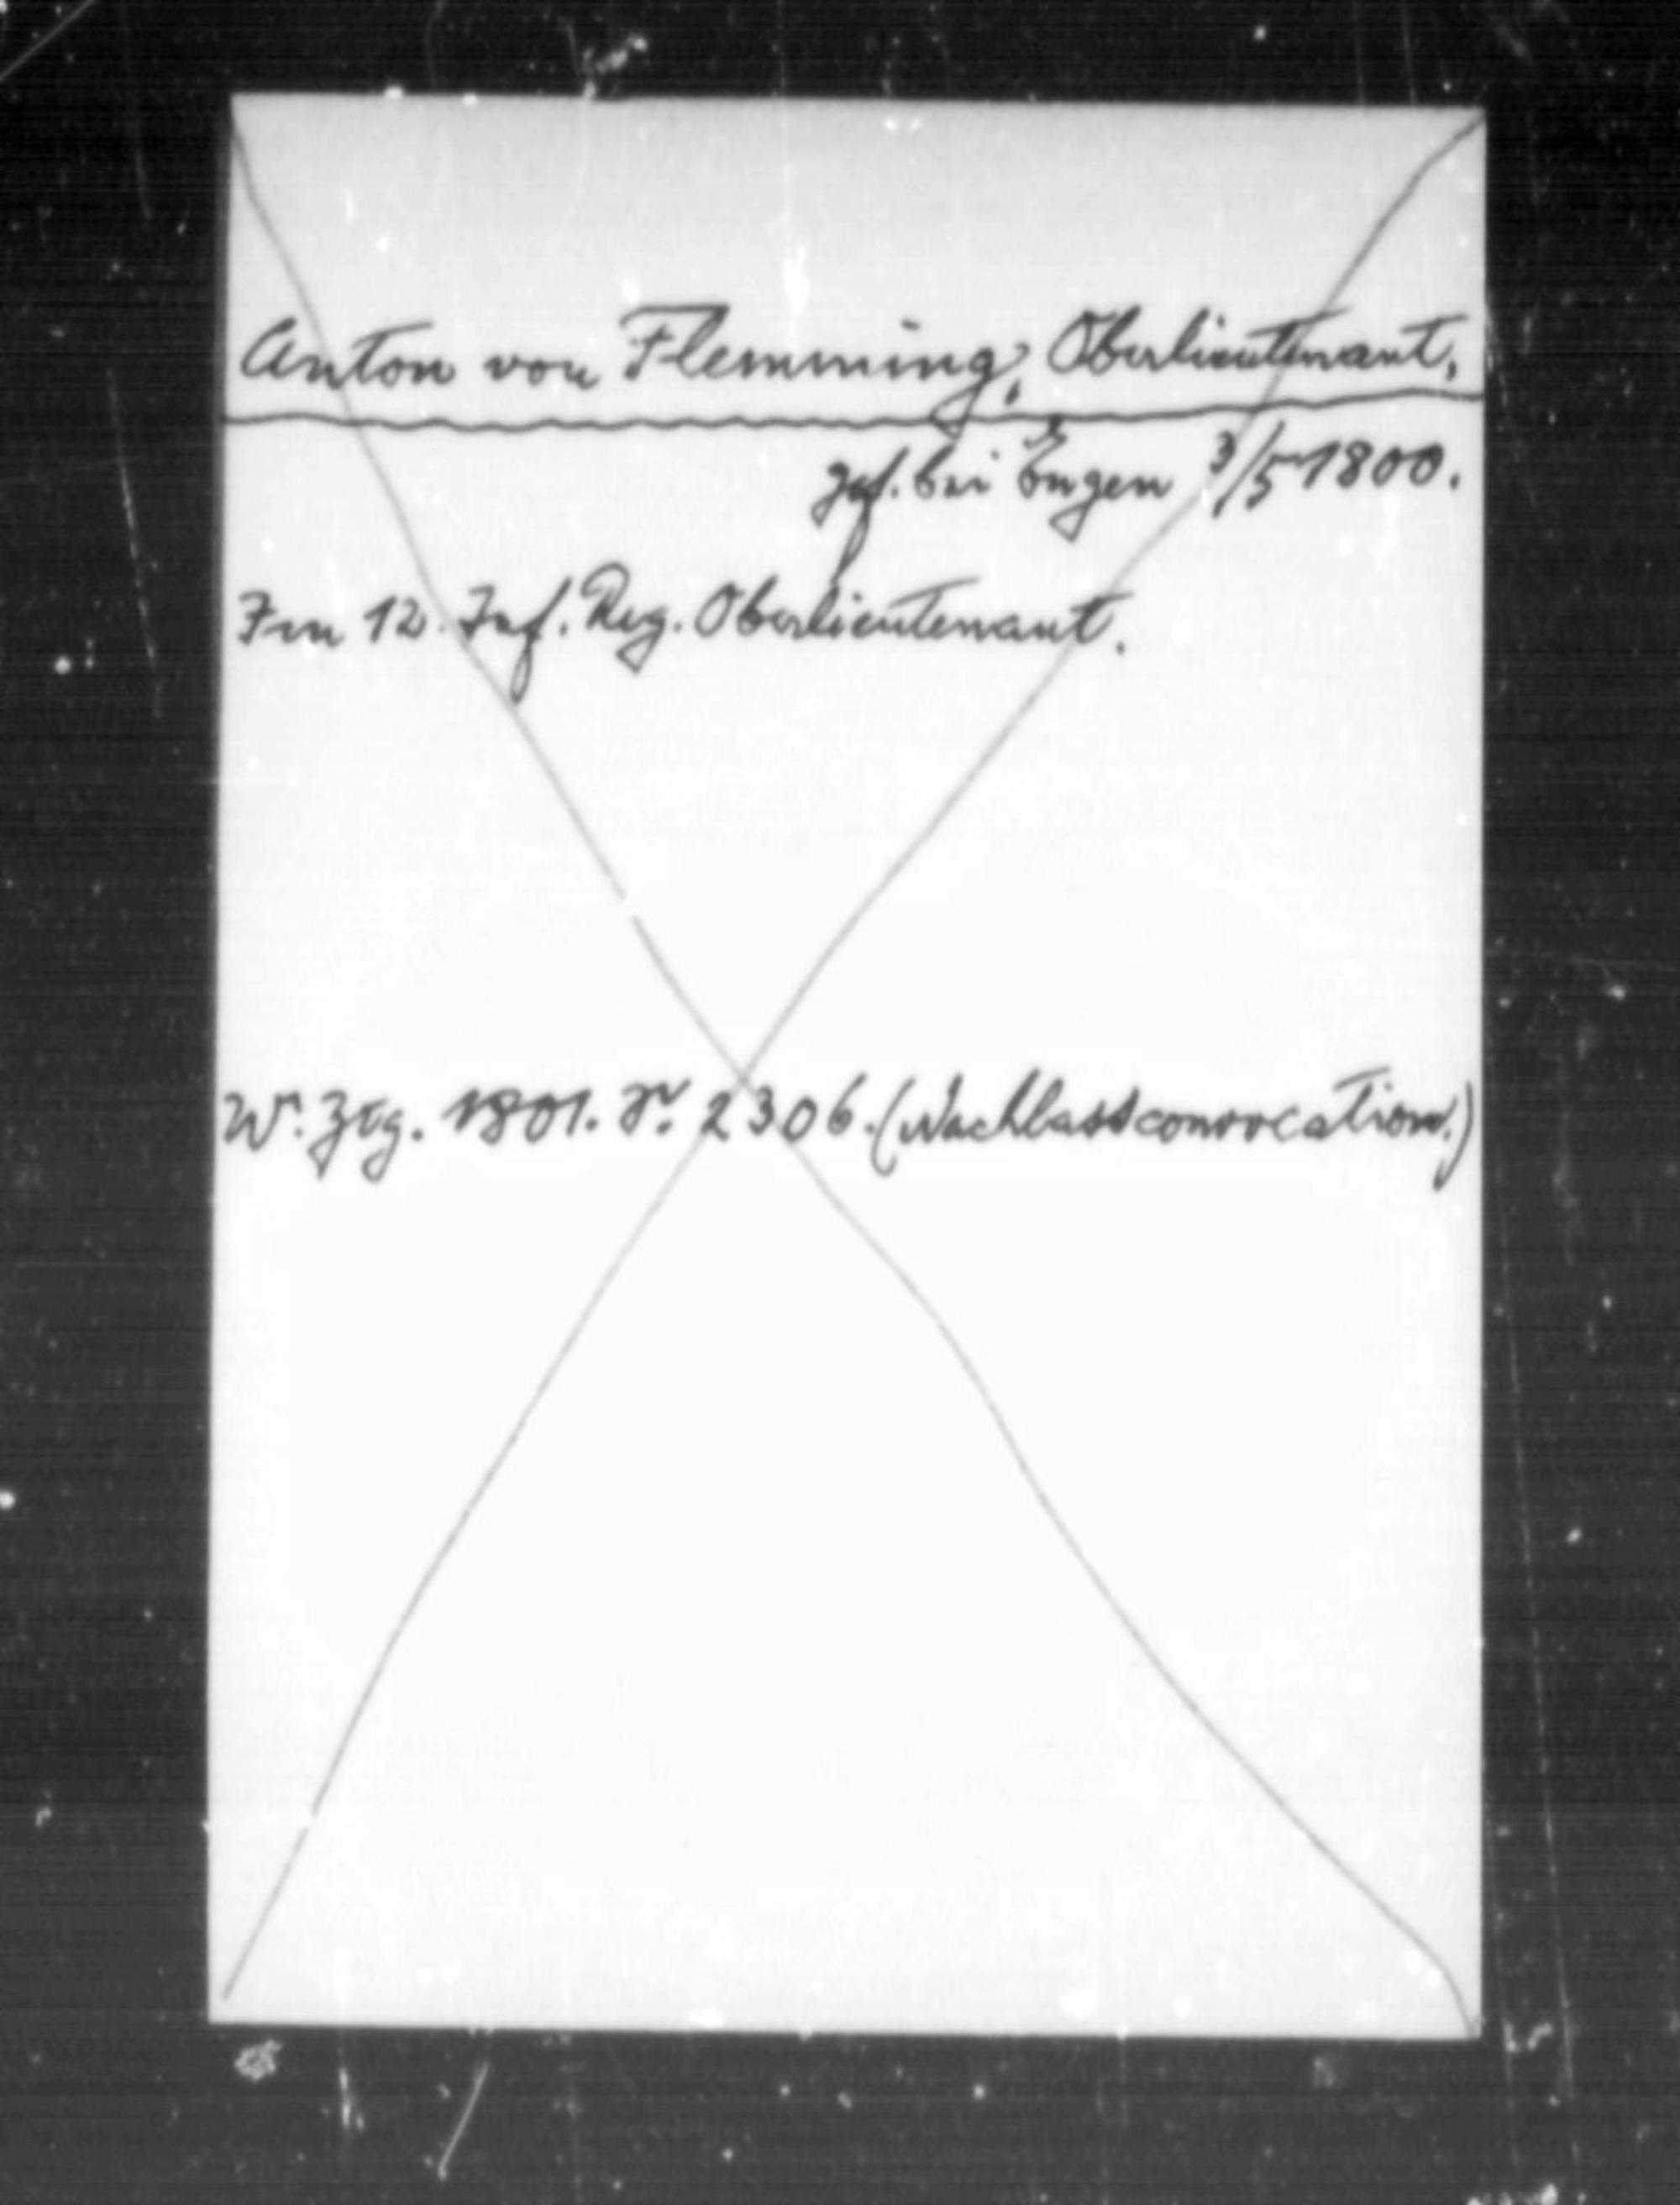 Anton von Flemming, Oberlieutenant,
gef. bei Engen 3/5 1800.
Im 12. Inf. Reg. Oberlieutenant.
W. Ztg. 1801. S. 2306. (Nachlassconvocation.)